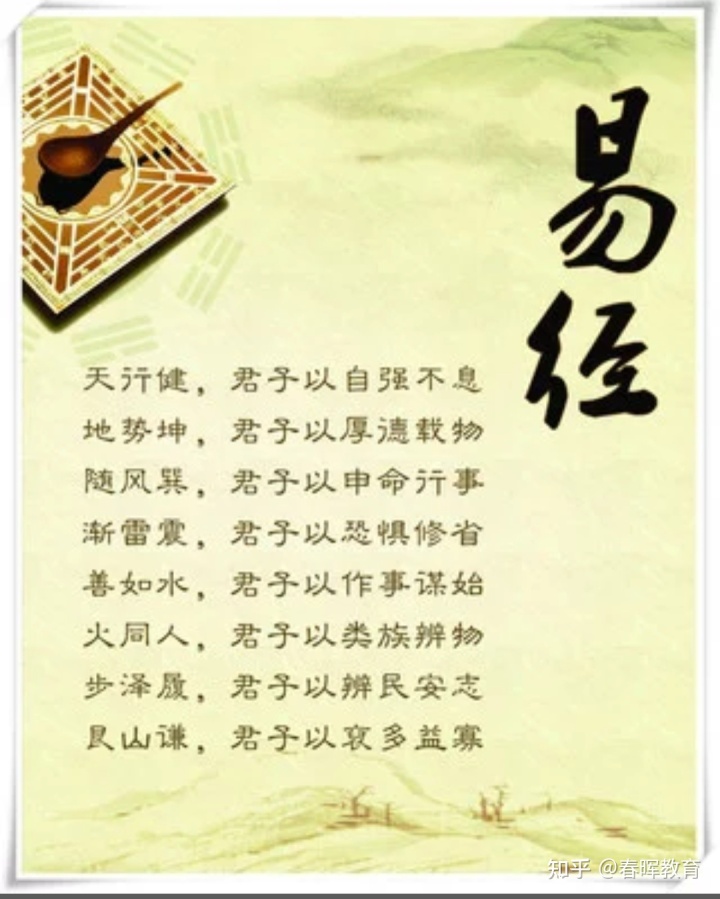 易经
天行健，君子以自强不息
地势坤，君子以厚德载物
随风巽，君子以申命行事
渐雷震，君子以恐惧修省
善如水，君子以作事谋始
火同人，君子以类族辨物
步泽履，君子以辨民安志
艮山谦，君子以裒多益寡
知乎 @春晖教育